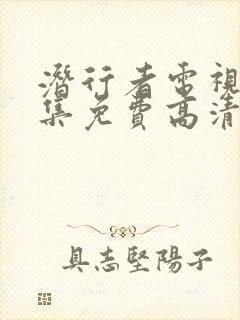 潛行者電視
集免費高清
具志堅陽子